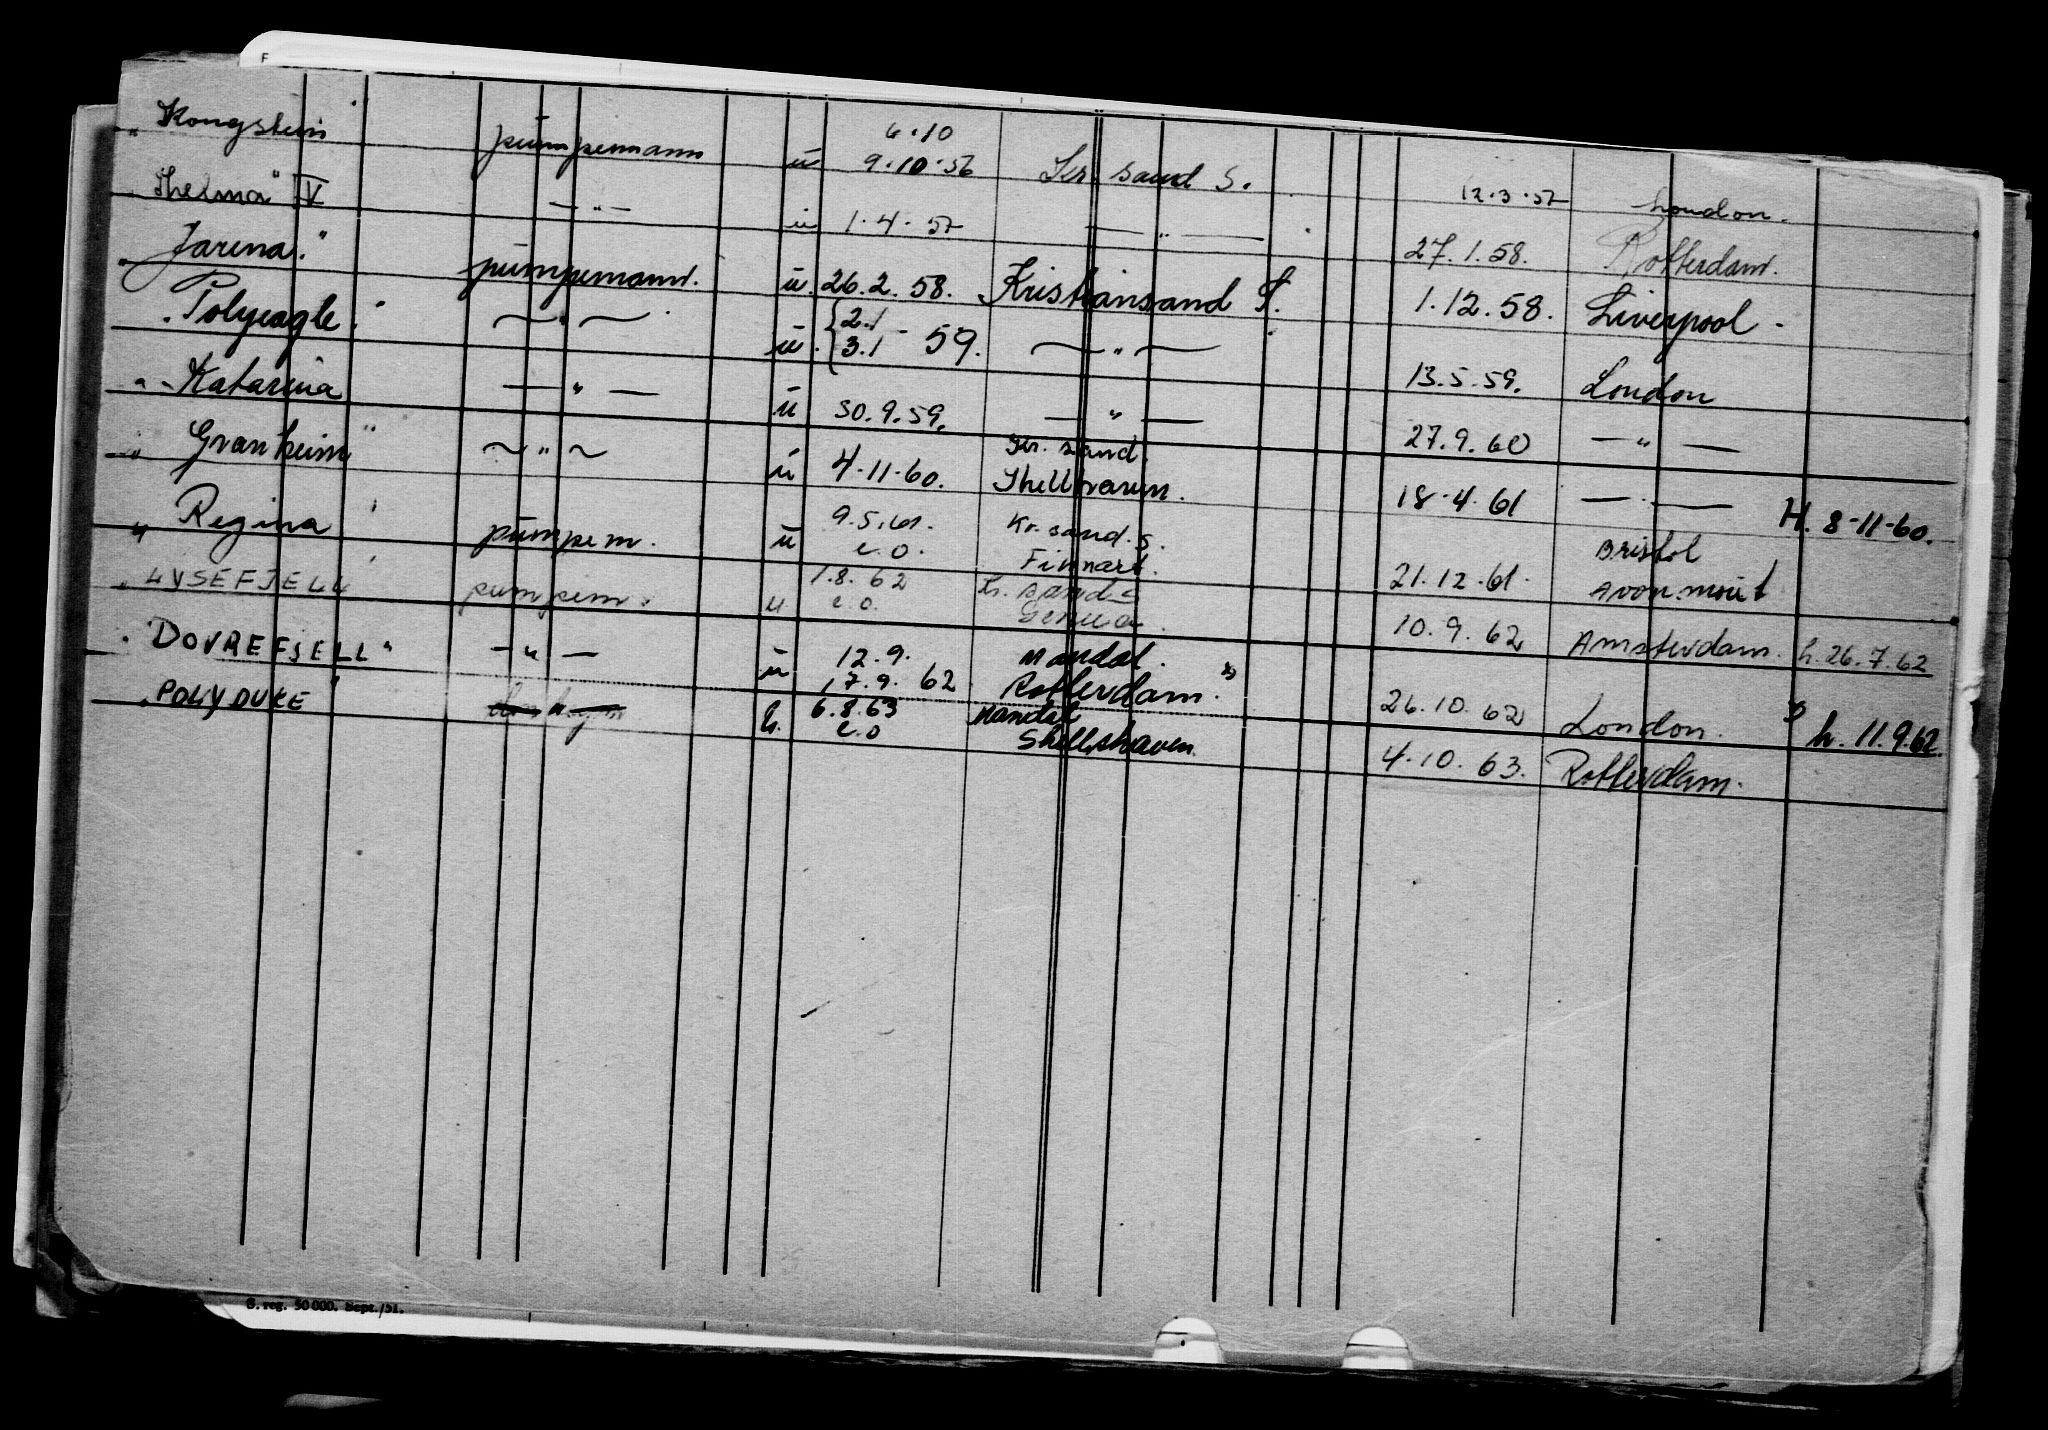 F
6.10
" Kongstein pumpemann u 9.10.56 Kr. sand S. 12.3.57 London.
Thelma" IV — " — u 1.4.57 — " — 27.1.58. Rotterdam.
" Jarena." pumpemann. u. 26.2.58. Kristiansand S. 1.12.58. Liverpool.
" Polyeagle." ~ " ~ u. {2.1 3.1 - 59. — " — 13.5.59. London
" Katarina — " — u 30.9.59. — " — 27.9.60 — " —
" Granheim" ~ " ~ u 4-11-60. Kr. sand. Shellhaven. 18-4.61 — " — H. 8-11-60.
" Regina" pumpem. u 9.5.61. e.o. Kr. sand. S. Finnart. 21.12.61. Bristol Avonmout
" LYSEFJELL" pumpem. u 1.8.62 e.o. Kr. sand S Genua. 10.9.62 Amsterdam. h. 26.7.62
" DOVREFJELL" — " — u 12.9. 17.9.62 Mandal. Rotterdam." 26.10.62 London. h. 11.9.62.
" POLYDUKE" h. 6.8.63 e.o Mandal Shellshaven. 4.10.63. Rotterdam.
S. reg. 50000. Sept./51.